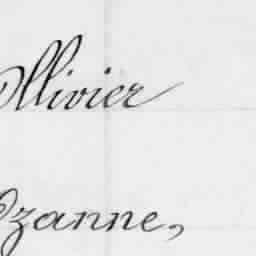 Ollivier
Ozanne,